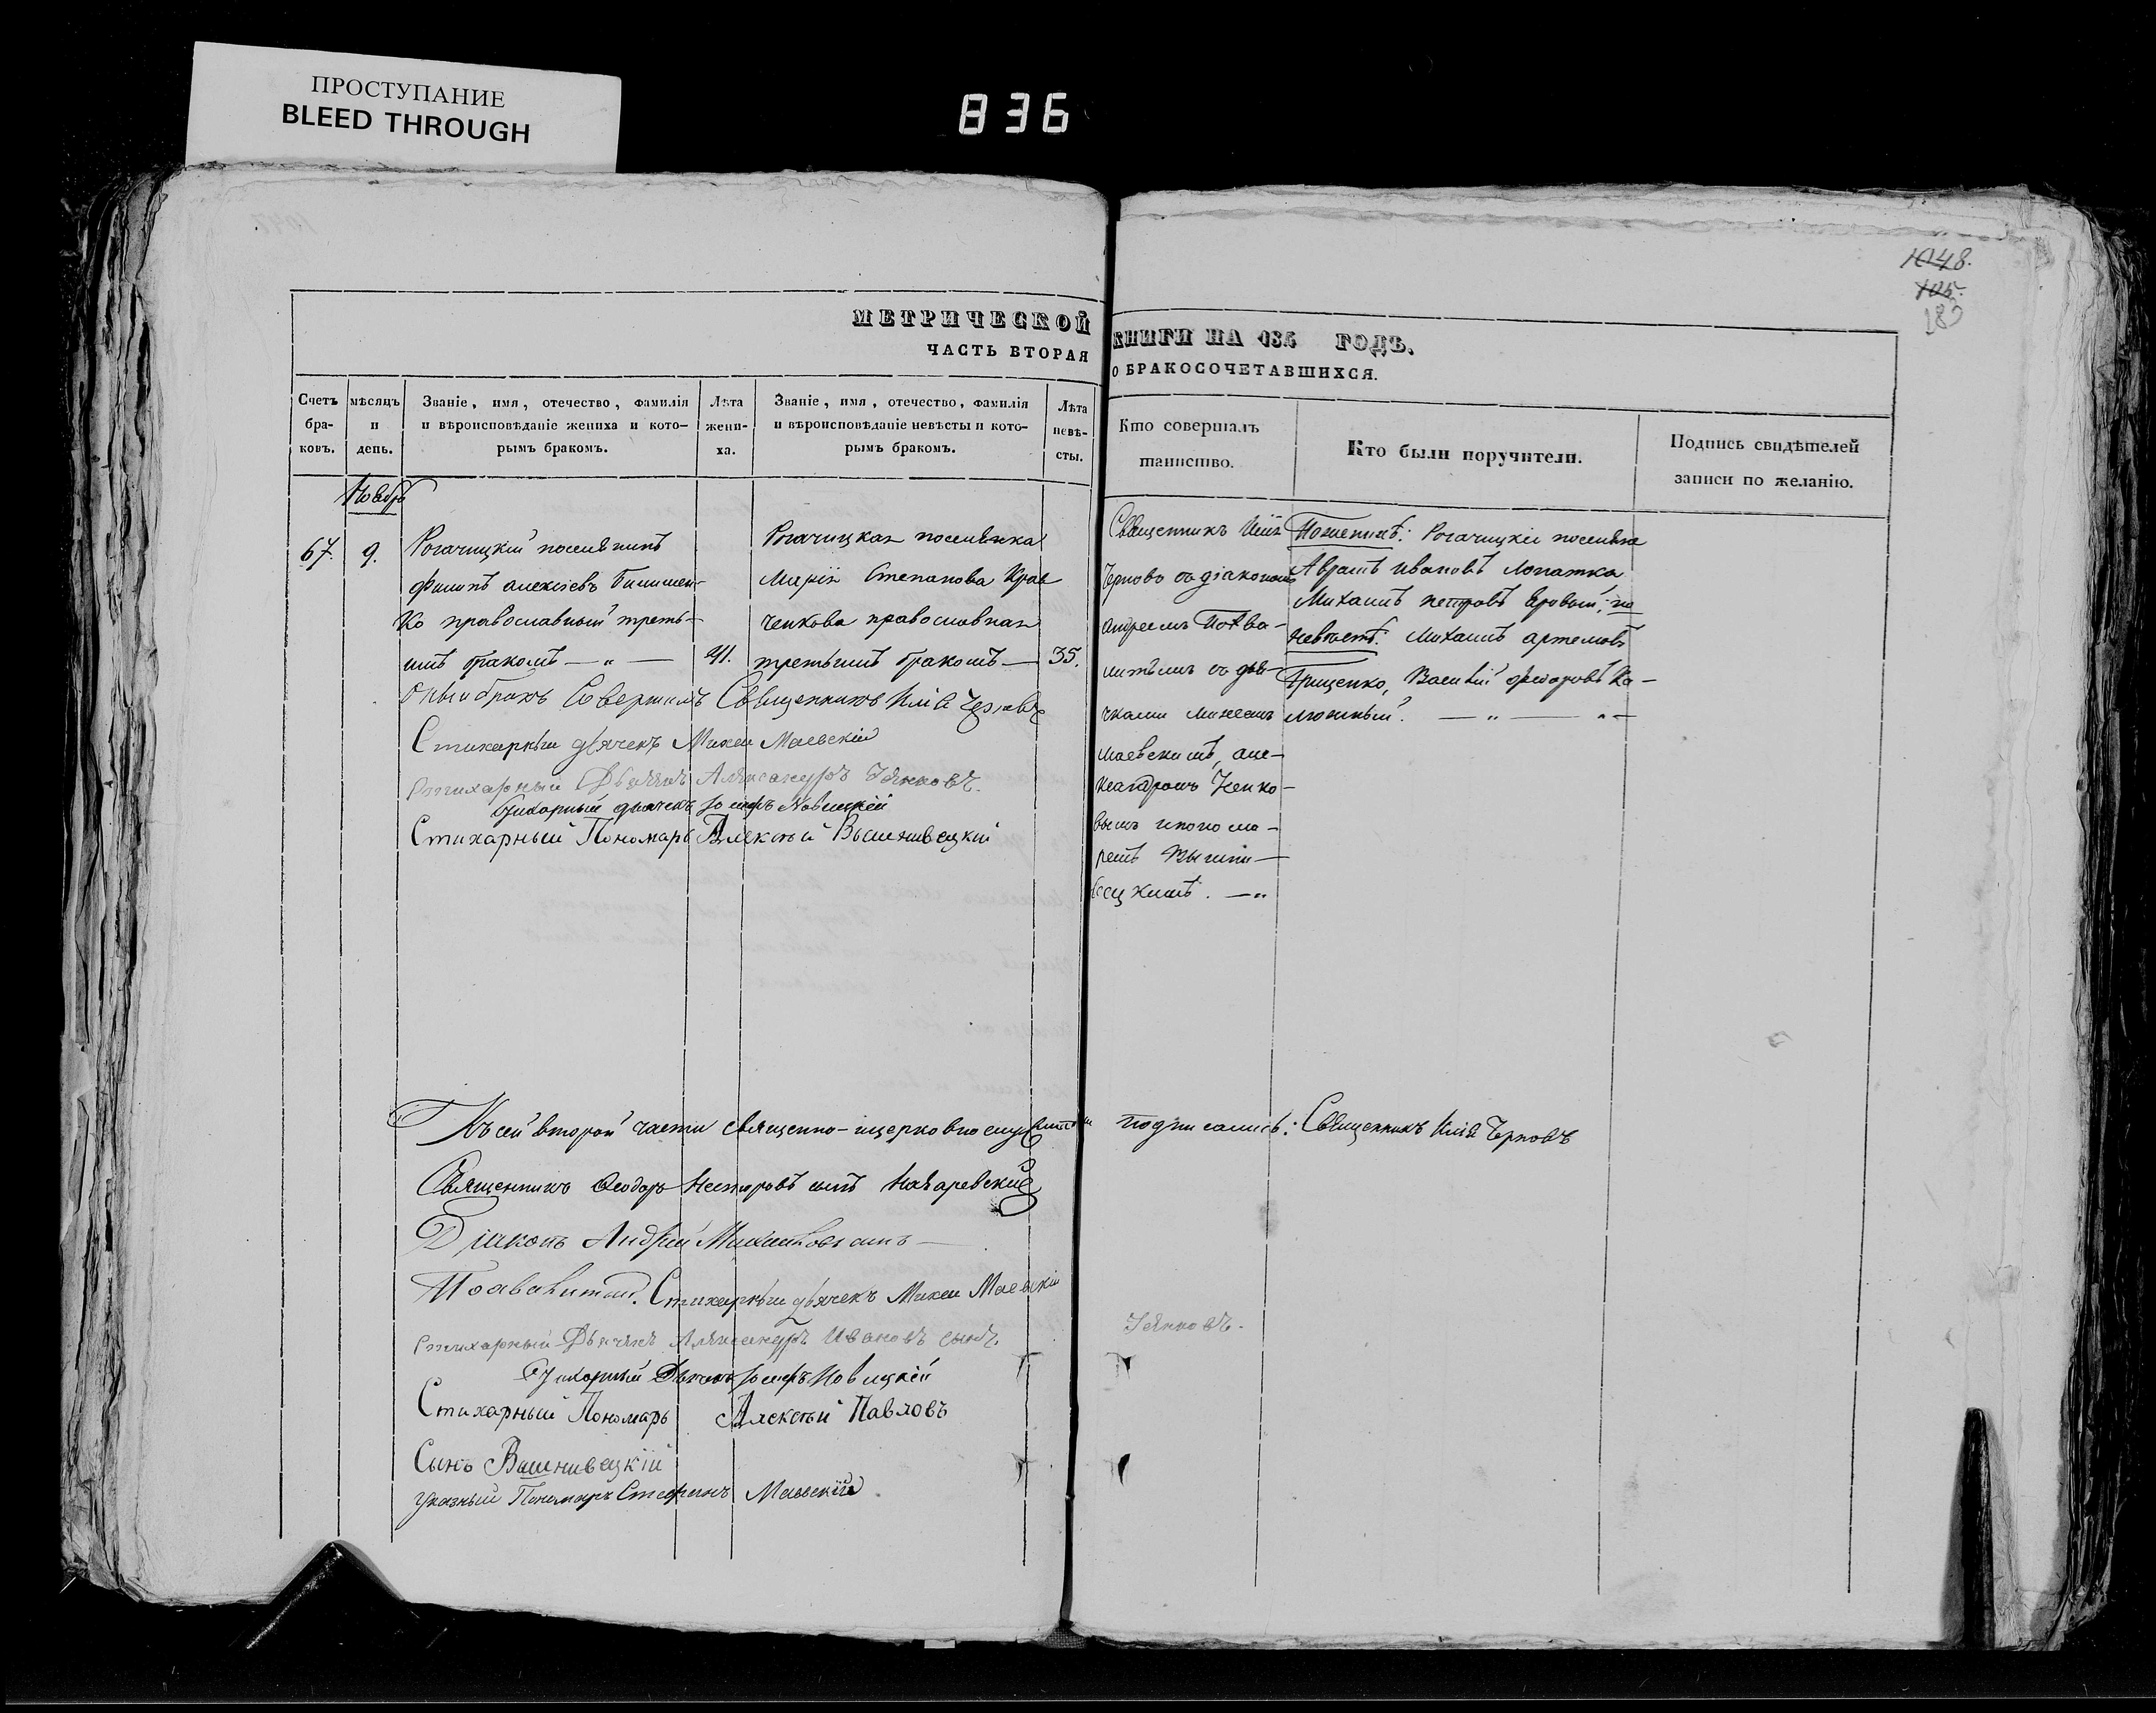 ПРОСТУПАНИЕ
BLEED THROUGH
836
1048.
105.
183
МЕТРИЧЕСКОЙ КНИГИ НА 185 ГОДЪ.
ЧАСТЬ ВТОРАЯ О БРАКОСОЧЕТАВШИХСЯ.
Счетъ браковъ.
мѣсяцъ и день.
Званіе, имя, отечество, фамилія
и вѣроисповѣданіе жениха и кото-
рымъ бракомъ.
Лѣта
жени-
ха.
Званіе, имя, отечество, фамилія
и вѣроисповѣданіе невѣсты и кото-
рымъ бракомъ.
Лѣта
невѣ-
сты.
Кто совершалъ
таинство.
Кто были поручители.
Подпись свидѣтелей
записи по желанію.
Ноябрь
67.
9.
Рогачицкій поселянинъ
Филипъ Алексіевъ
ко православный треть-
имъ бракомъ — „ —
41.
Рогачицкая поселянка
Марія Степанова Крав
ченкова православная
третьимъ бракомъ —
35.
Священникъ Илія
Черновъ съ діакономъ
Андреемъ Похва-
литымъ съ дья-
чками Михеемъ
Маевскимъ, але-
ксандромъ Ченко-
вымъ и понома-
ремъ Выши-
вецкимъ. — „
По женихѣ: Рогачицкіе поселяне
Аврамъ Ивановъ Лопатка
Михаилъ Петровъ Яровый; по
невѣстѣ: Михаилъ Артемовъ
Грищенко, Василій Федоровъ Ка-
люжный. — „ — „ —
Оный бракъ Совершилъ Священникъ Илія Черновъ
Стихарный дьячекъ Михей Маевскій
Стихарный Дьячекъ Александръ Ченковъ.
Стихарный дьячекъ Іосифъ Новицкій
Стихарный Пономарь Алексѣй Вышнивецкій
Къ сей второй части священно-ицерковнослужители подписались: Священникъ Илія Черновъ
Священникъ Ѳеодоръ Несторовъ сынъ Назаревскій
Діаконъ Андрей Михайловъ сынъ —
Похвалитый. Стихарный дьячекъ Михей Маевскій
Стихарный Дьячекъ Александръ Ивановъ сынъ Ченковъ.
Стихарный Дьячекъ Іосифъ Новицкій
Стихарный Пономарь Алексѣй Павловъ
Сынъ Вышнивецкій
Указный Пономарь Стефанъ Маевскій.